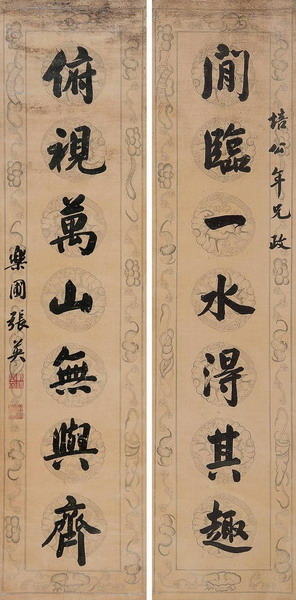 培公年兄政
閒臨一水得其趣
俯視萬山無與齊
樂圃張英